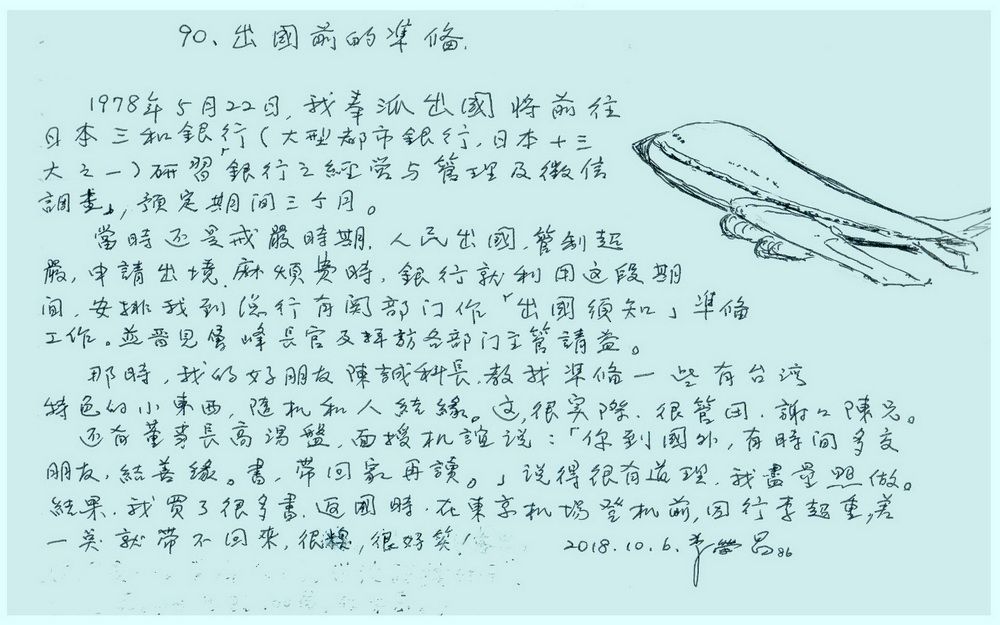 90、出國前的準備.
1978年5月22日,我奉派出國將前往
日本三和銀行(大型都市銀行,日本十三
大之一)研習「銀行之經営与管理及徵信
調查」,預定期间三个月。
當時还是戒嚴時期.人民出國,管制超
嚴,申請出境.麻煩費時,銀行就利用这段期
间,安排我到總行有関部门作「出國須知」準備
工作。並晋見層峰長官及拜訪各部门主管請益。
那時,我的好朋友陳誠科長.教我準備一些有台湾
特色的小東西,隨机和人結緣。这,很实際.很管用.謝々陳兄。
还有董事長高湯盤,面授机誼说:「你到國外,有時间多交
朋友,結善緣。書,帶回家再讀。」说得很有道理,我盡量照做。
結果.我買了很多書.返國時.在東京机場登机前,因行李超重,差
一矣就帶不回來,很糗,很好笑!
2018.10.6.李營昌86